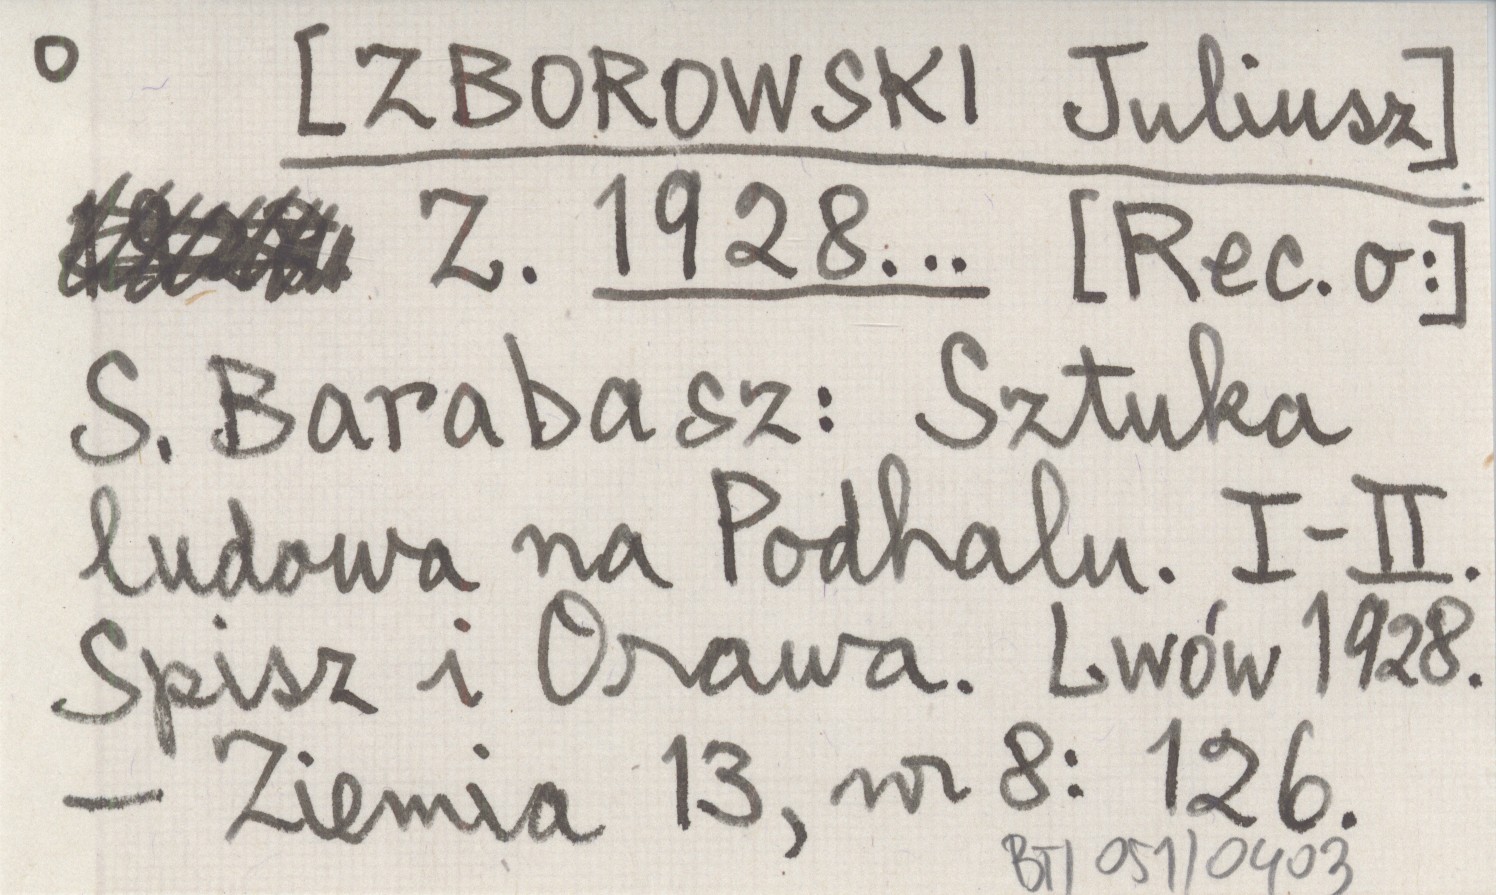 o [ZBOROWSKI Juliusz]
Z. 1928... [Rec. o:]
S. Barabasz: Sztuka
ludowa na Podhalu. I-II.
Spisz i Orawa. Lwów 1928.
— Ziemia 13, nr 8: 126.
BT/051/0403